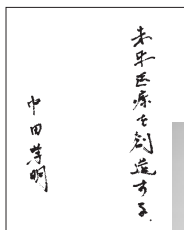 未来医療を創造する.
中田芳明